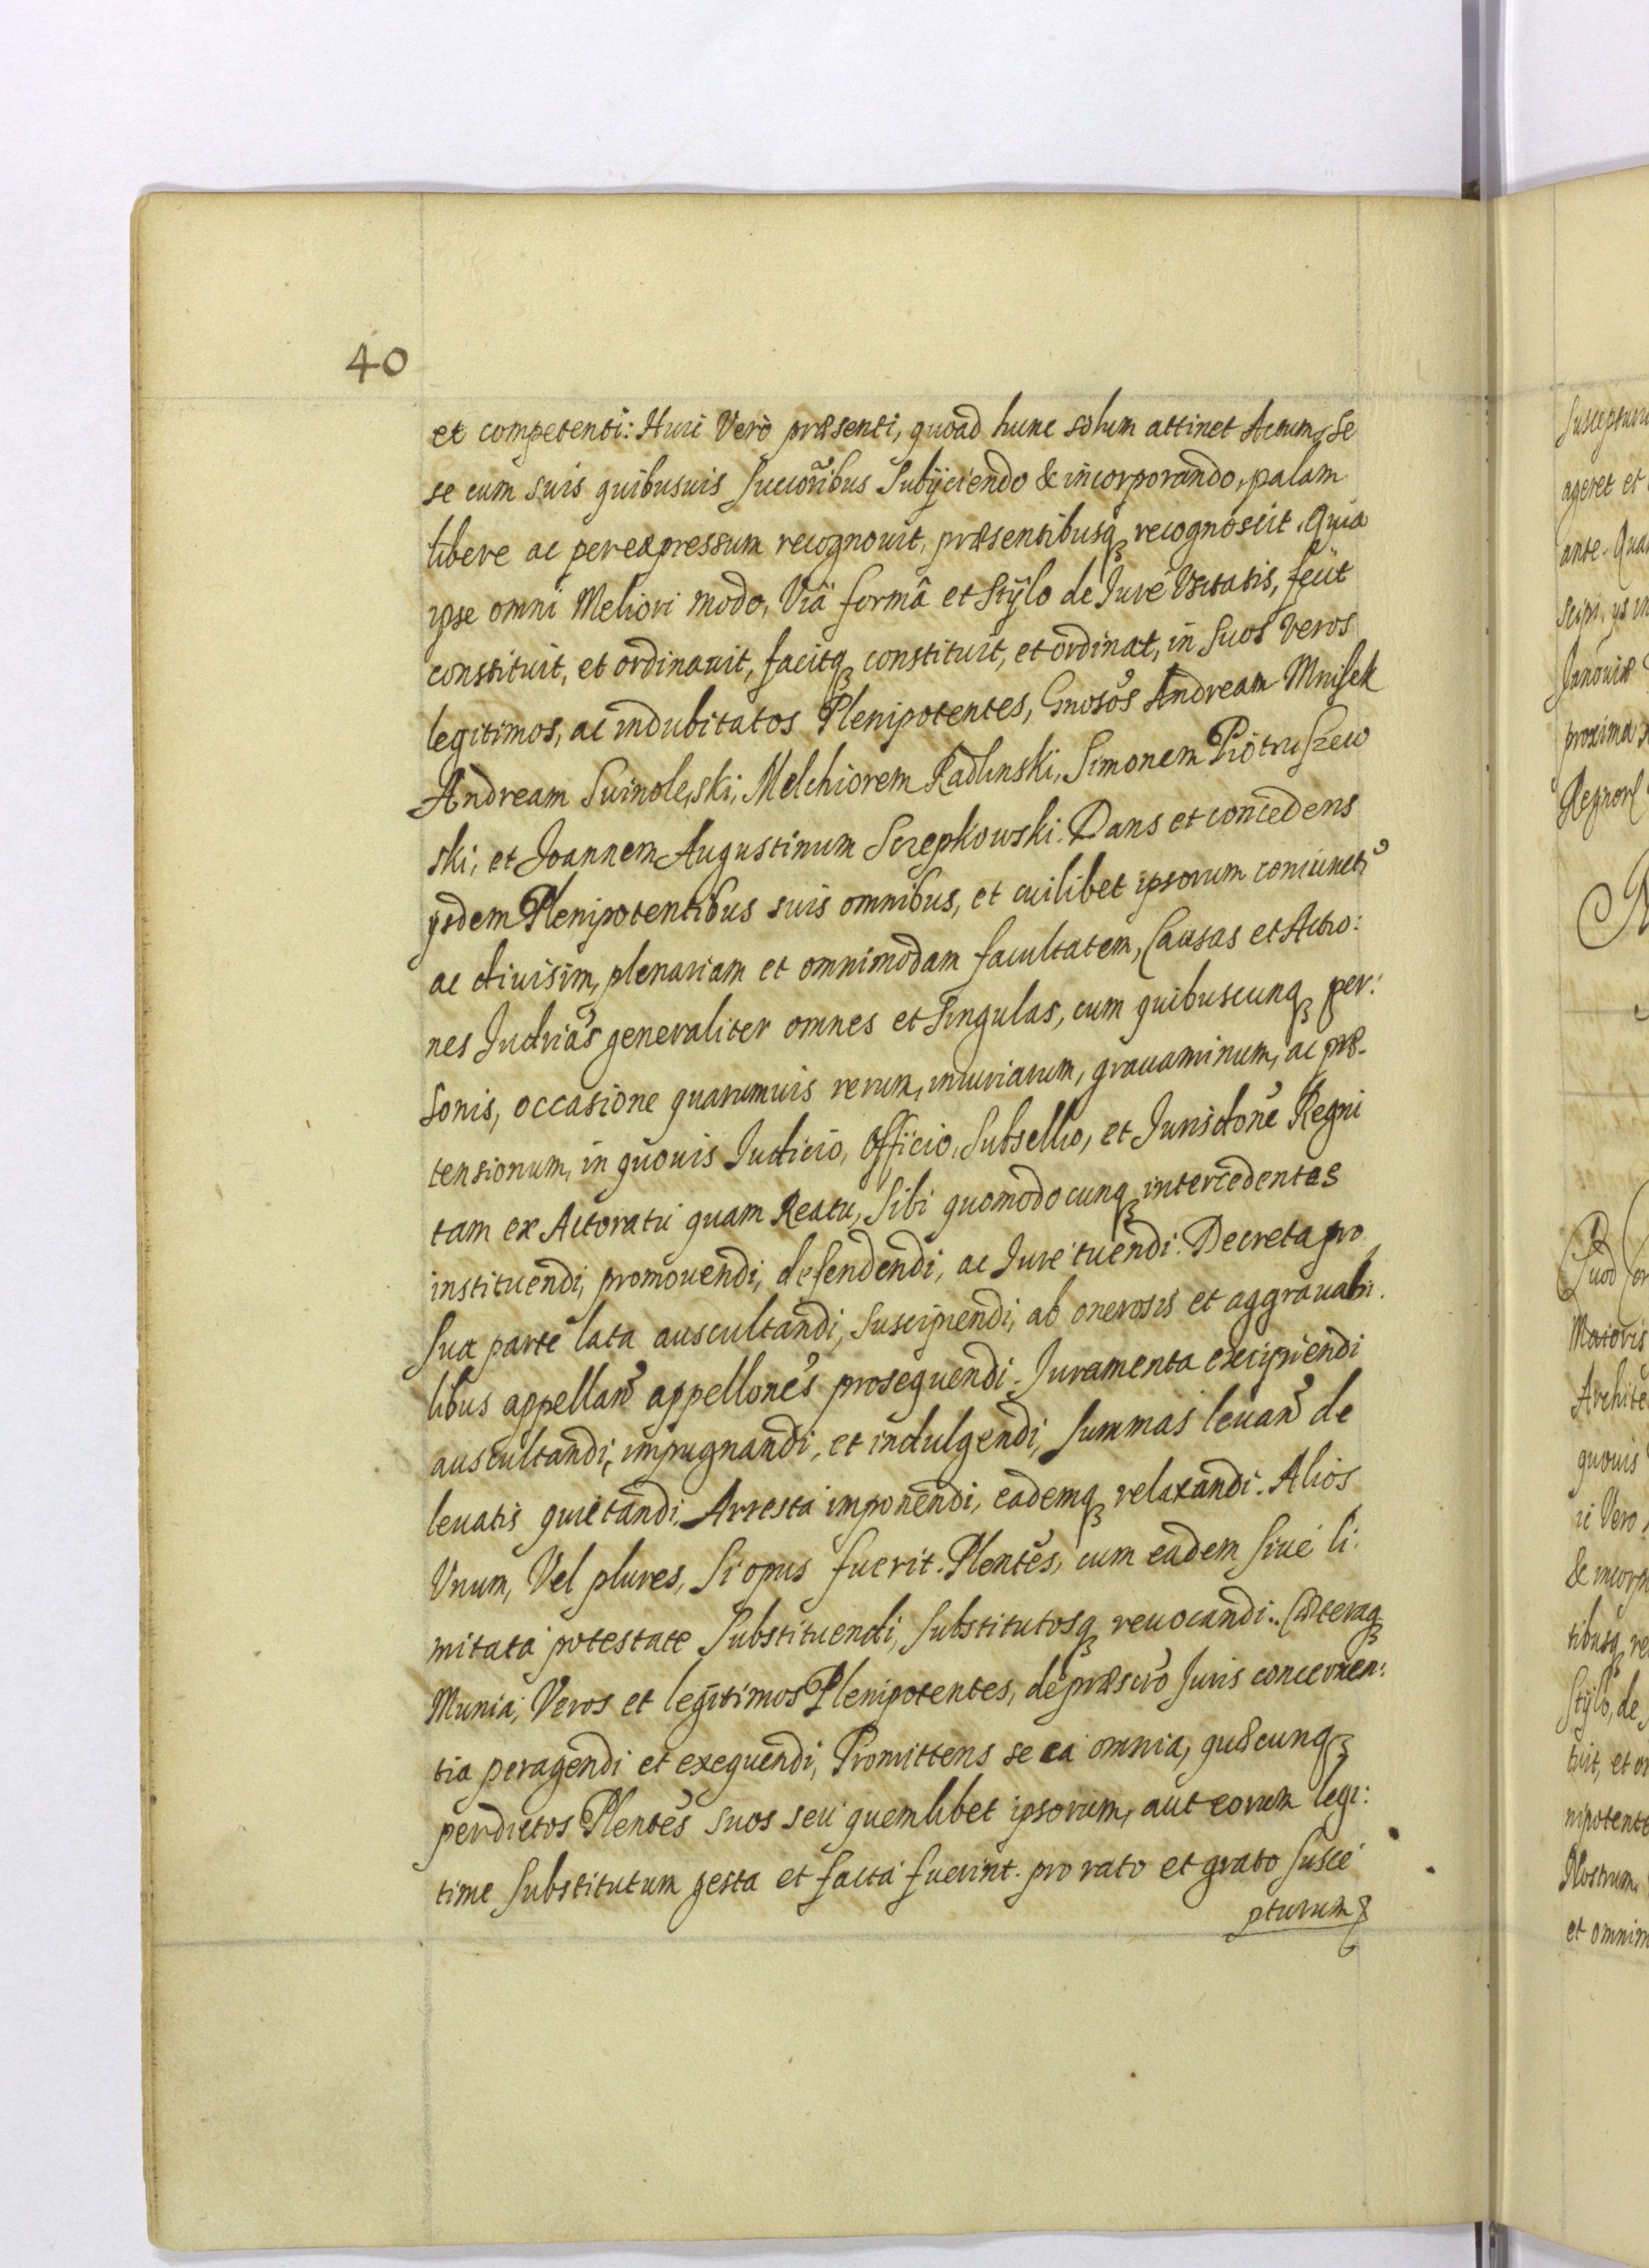 40
et competenti: Huic Verò præsenti, quoad hunc solum attinet Actum, se
se cum suis quibusuis succoribus Subijciendo & incorporando, palam
libere ac per expressum recognouit, præsentibusq recognoscit. Quia
ipse omni Meliori modo, Viâ formâ et Stÿlo de Jure Vsitatis, fecit
constituit, et ordinauit, facitq constituit, et ordinat, in suos veros
legitimos, ac indubitatos Plenipotentes, Gnosos Andream Mnisek
Andream Swinoleski, Melchiorem Radlinski, Simonem Piotruszew
ski, et Joannem Augustinum Sczepkowski. Dans et concedens
ysdem Plenipotentibus suis omnibus, et cuilibet ipsorum coniunct
ac diuisim, plenariam et omnimodam facultatem, Causas et Actio:
nes Judrias generaliter omnes et singulas, cum quibuscunq per:
sonis, occasione quarumuis rerum, iniuriarum, grauaminum, ac præ-
tensionum, in quouis Judicio, Officio, Subsellio, et Jurisdone Regni
tam ex Actoratu quam Reatu, sibi quomodocunq intercedentes
instituendi, promouendi, defendendi, ac Jure tuendi. Decreta pro
sua parte lata auscultandi, suscipiendi, ab onerosis et aggrauabi.
libus appellan appellones prosequendi. Juramenta excipiendi
auscultandi, impugnandi, et indulgendi, summas leuan de
leuatis quietandi. Arresta imponendi, eademq relaxandi. Alios
Vnum, Vel plures, si opus fuerit. Plentes, cum eadem siue li:
mitata potestate Substituendi, substitutosq reuocandi.. Cæteraq
Munia, Veros et legitimos Plenipotentes, de præscro Juris concernen:
tia peragendi et exequendi, Promittens se ea omnia, quæcunq
per dictos Plentes suos seu quemlibet ipsorum, aut eorum legi:
time substitutum gesta et facta fuerint. pro rato et grato susce
pturum